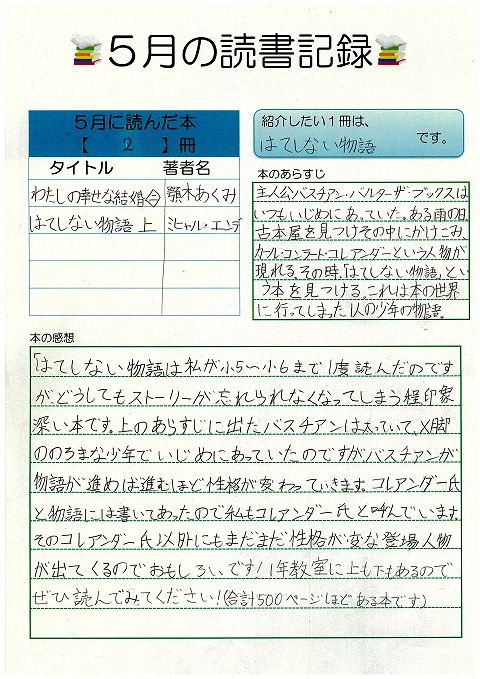 5月の読書記録
5月に読んだ本
【 2 】冊
タイトル 著者名
わたしの幸せな結婚 顎木あくみ
はてしない物語 上 ミヒャル・エンデ
紹介したい1冊は、
はてしない物語 です。
本のあらすじ
主人公バスチアン・バルターザ・ブックスは
いつもいじめにあっていた。ある雨の日、
古本屋を見つけその中にかけこみ、
カール・コンラート・コレアンダーという人物が
現れる。その時、「はてしない物語」とい
う本を見つける。これは本の世界
に行ってしまった1人の少年の物語。
本の感想
「はてしない物語は私が小5〜小6まで1度読んだのです
が、どうしてもストーリーが忘れられなくなってしまう程印象
深い本です。上のあらすじに出たバスチアンは太っていて、X脚
ののろまな少年でいじめにあっていたのですがバスチアンが
物語が進めば進むほど性格が変わっていきます。コレアンダー氏
と物語には書いてあったので私もコレアンダー氏と呼んでいます。
そのコレアンダー氏以外にもまだまだ性格が変な登場人物
が出てくるのでおもしろいです!1年教室に上も下もあるので
ぜひ読んでみてください!(合計500ページほどある本です)